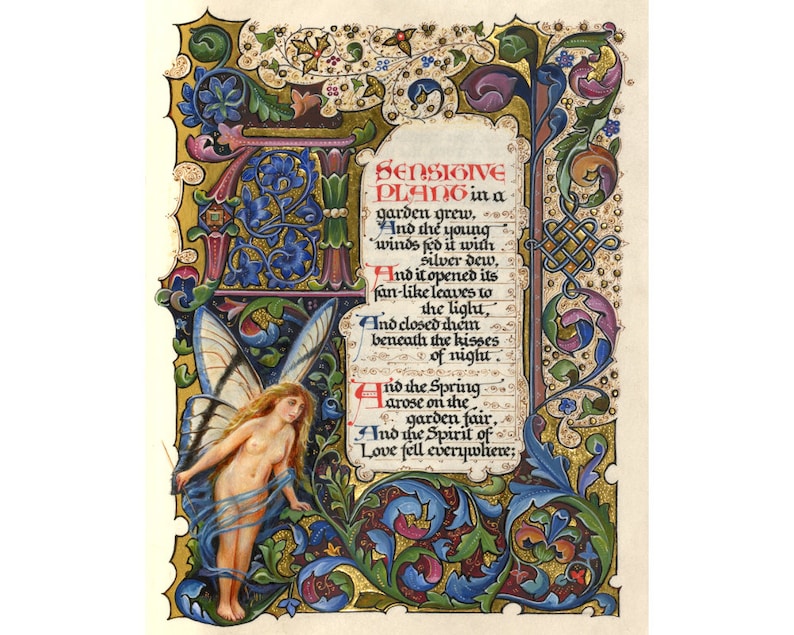 A SENSITIVE
PLANT in a
garden grew,
And the young
winds fed it with
silver dew,
And it opened its
fan-like leaves to
the light,
And closed them
beneath the kisses
of night.
And the Spring
arose on the
garden fair,
And the Spirit of
Love fell everywhere;